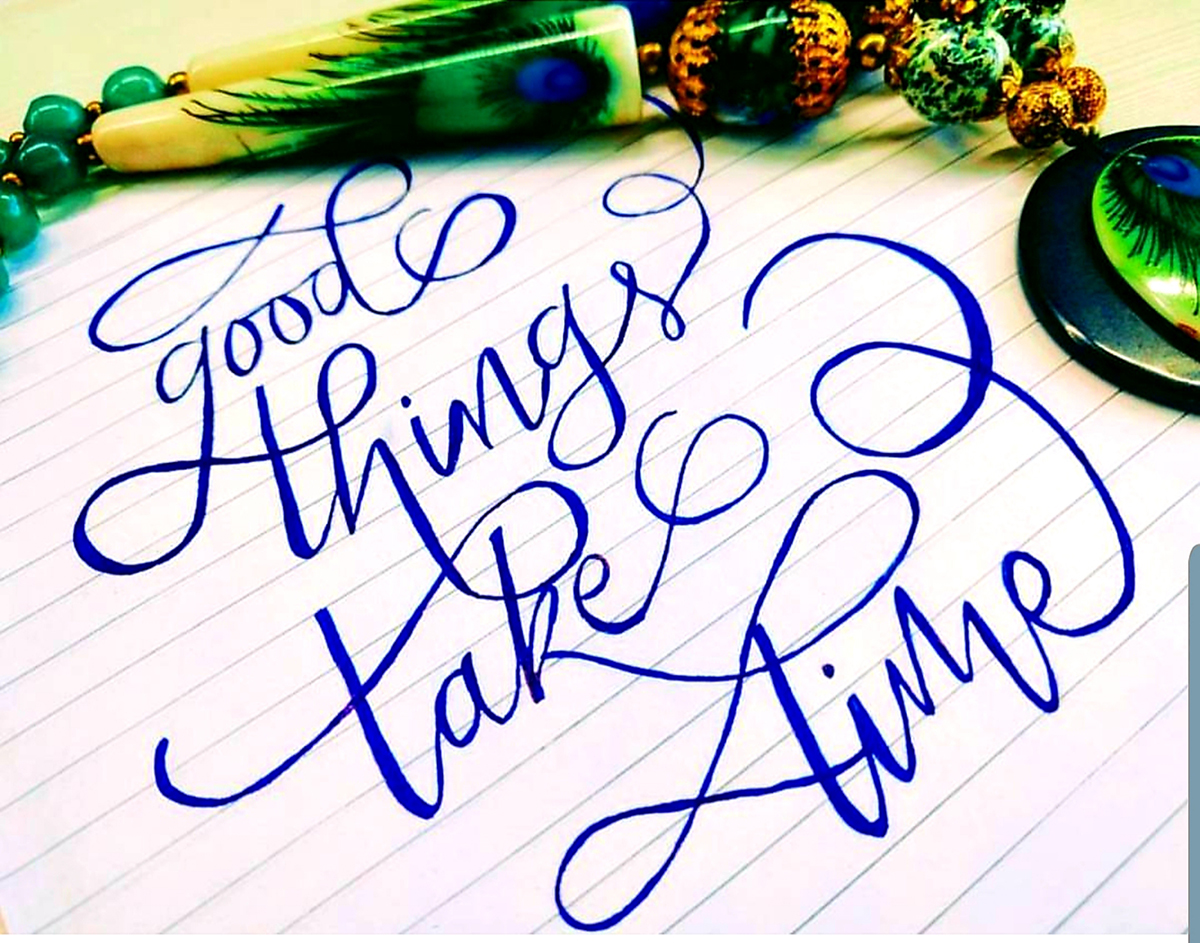 good
things
take
time